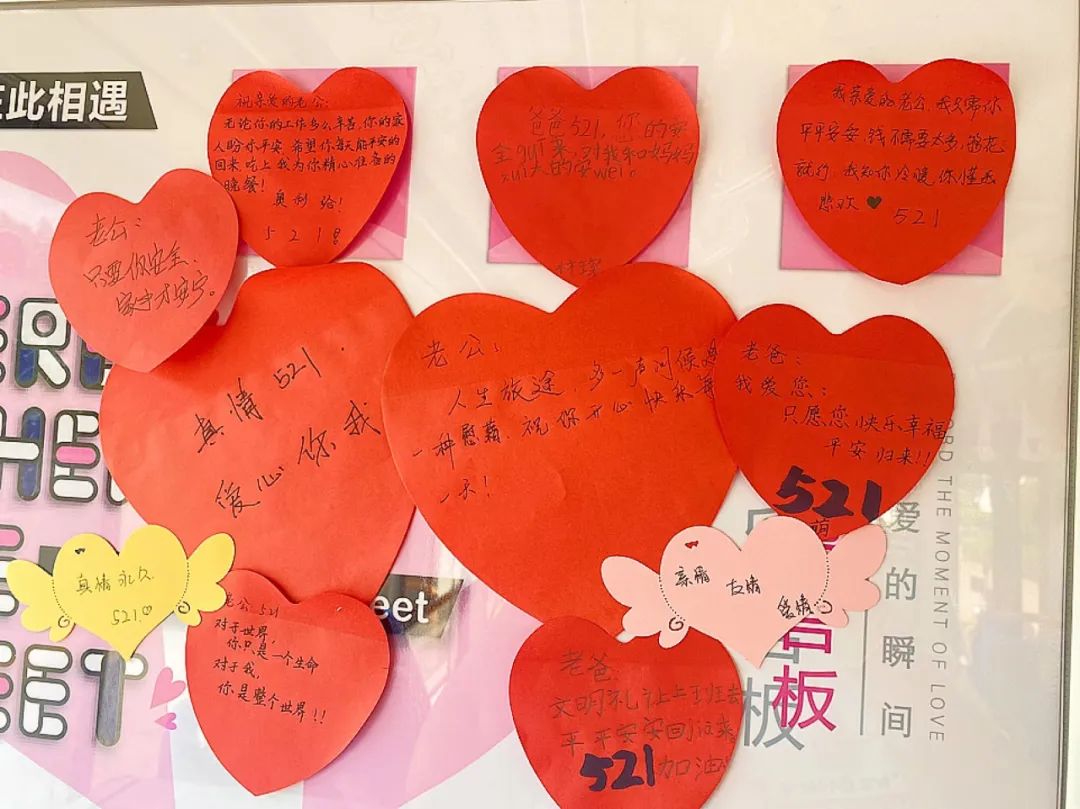 在此相遇
祝亲爱的老公:
无论你的工作多么辛苦,你的家
人盼你平安 希望你每天能平安的
回来,吃上我为你精心准备的
晚餐!
奥利给!
5 2 1!
爸爸521,您的安
全gui来,对我和妈妈
zui大的安wei。
我亲爱的老公,我只需你
平平安安,钱不需要太多,够花
就行,我知你冷暖,你懂我
悲欢♥ 521
老公:
只要你安全,
家中才安宁。
真情 521.
爱心 你 我
老公:
人生旅途,多一声问候是
一种慰藉.祝你开心 快乐每
一天!
老爸:
我爱您:
只愿您快乐幸福
平安归来!!
521
萌
真情永久
521.♡
亲情
友情
爱情
老公521
对于世界,
你只是一个生命
对于我,
你是整个世界!!
老爸
文明礼让上班去
平平安安回家来
521加油
eet
告
板
爱的瞬间
ORD THE MOMENT OF LOVE